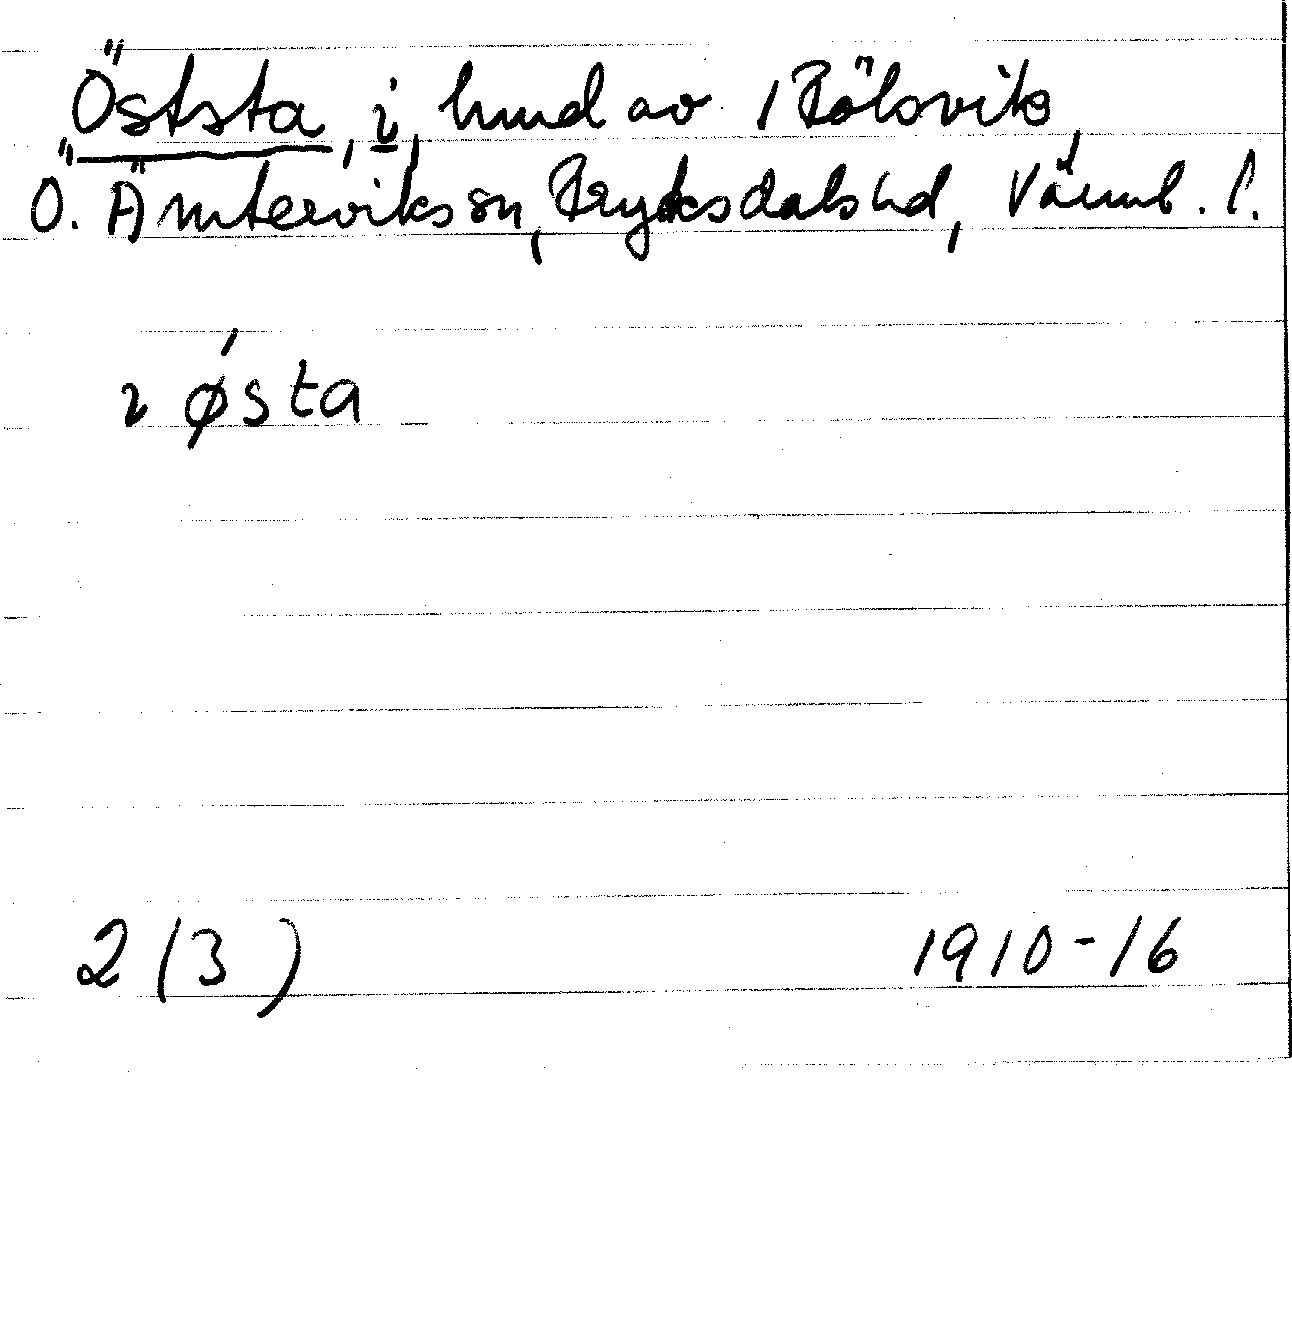 Öststa, i, hmd av 1
Ö. Ämterviks sn, Fryksdals hd, Värml. l.
ı ǿsta
2 (3) 1910-16